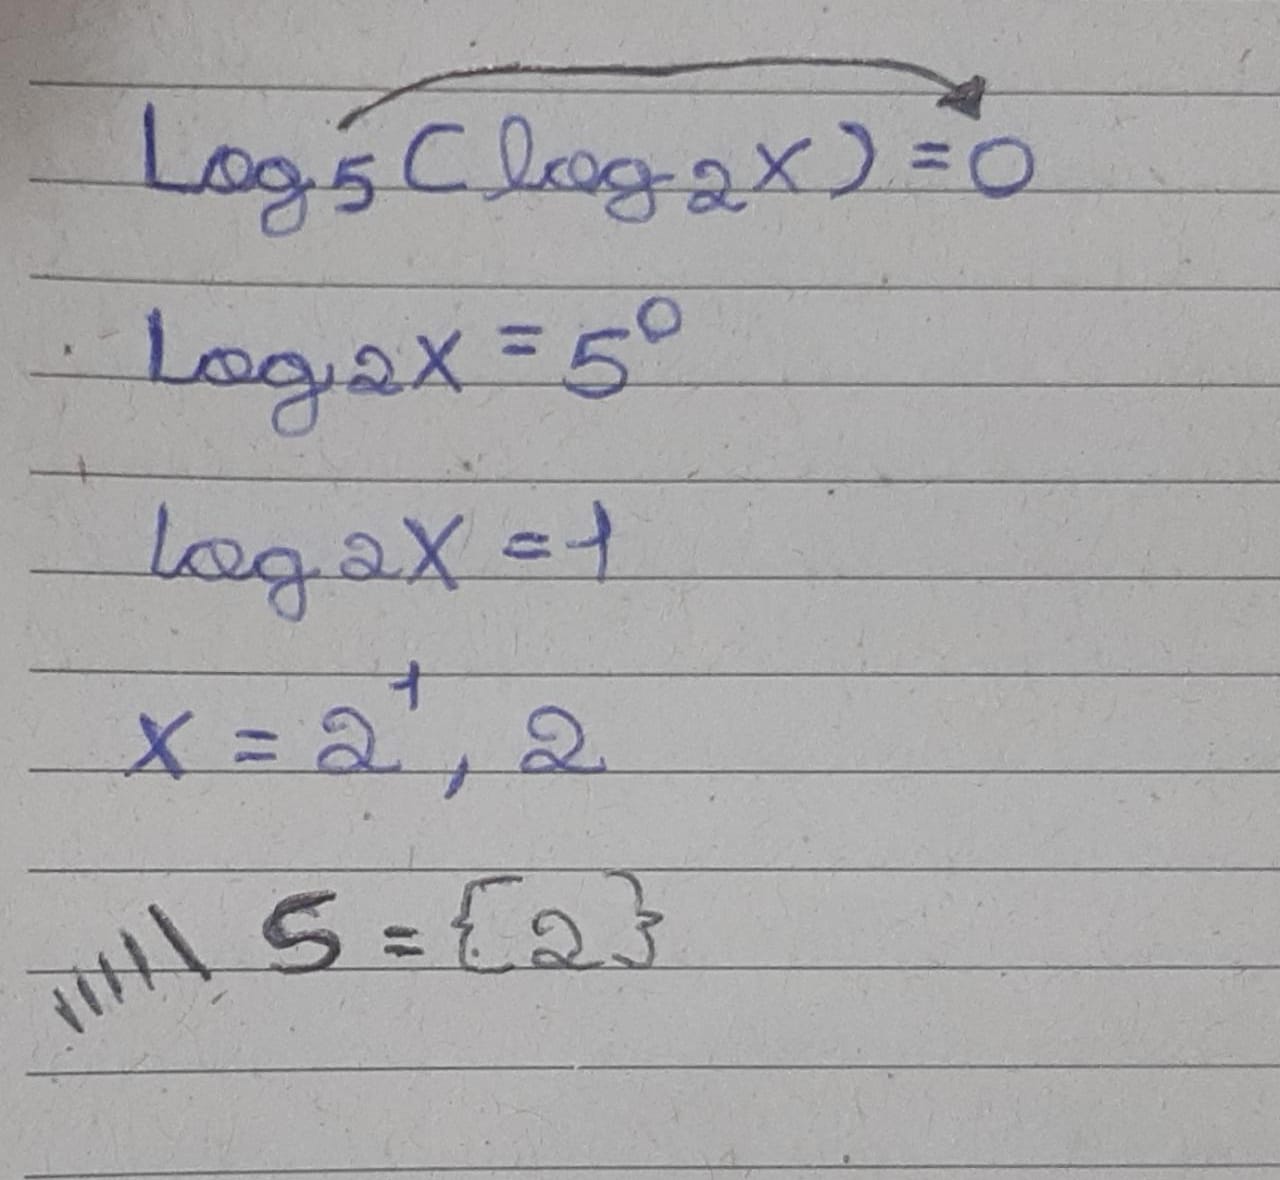 Log₅(log₂x)=0
Log₂x=5⁰
log₂x=1
x=2¹, 2
S={2}